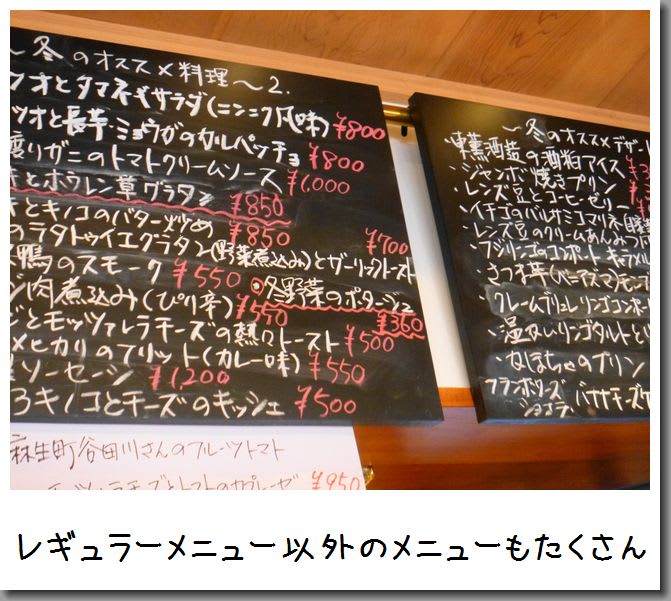 ～冬のオススメ料理～2.
ツオとタマネギサラダ(ニンニク風味) ¥800
ツオと長芋・ミョウガのカルペッチョ ¥800
渡りガニのトマトクリームソース ¥1,000
とホウレン草グラタン ¥850
とキノコのバター炒め ¥850
のラタトゥイユグラタン(野菜煮込み)とガーリックトースト ¥700
鴨のスモーク ¥550 冬野菜のポタージュ ¥360
肉煮込み(ぴり辛) ¥550
とモッツァレラチーズの熱々トースト ¥500
メヒカリのフリット(カレー味) ¥550
ソーセージ ¥1200
ろキノコとチーズのキッシュ ¥500
麻生町谷田川さんのフルーツトマト
トマトのカプレーゼ ¥950
～冬のオススメデザー
・東薫酒蔵の酒粕アイス
・ジャンボ焼きプリン
・レンズ豆とコーヒーゼリー
・イチゴのバルサミコマリネ
・レンズ豆のクリームあんみつ
・フジリンゴのコンポート キャラメル
・さつま芋
・クレームブリュレ リンゴコンポー
・温かいリンゴタルトと
・かぼちゃのプリン
フランボワーズショコラ・バナナチーズケ
レギュラーメニュー以外のメニューもたくさん